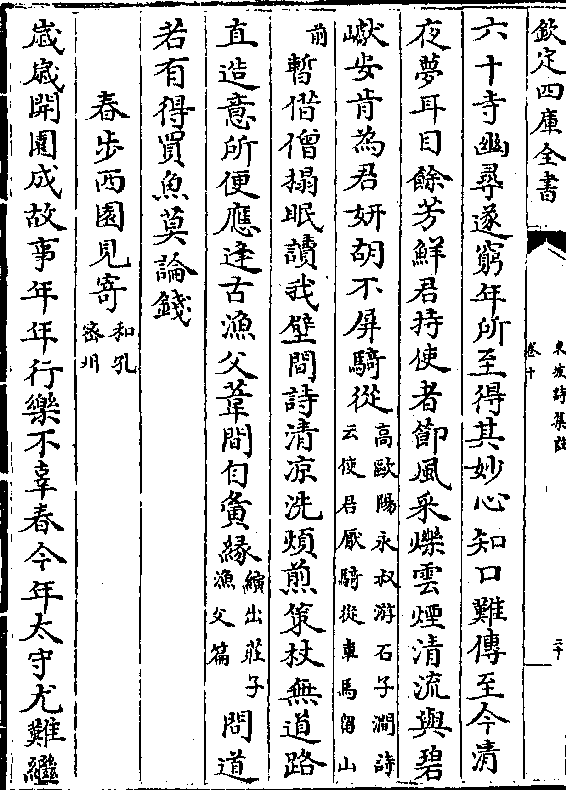 欽定四庫全書
東坡詩集註
卷十
二十
六十寺幽尋遂窮年所至得其妙心知口難傳至今清
夜夢耳目餘芳鮮君持使者節風采爍雲煙清流與碧
巘安肯為君妍胡不屏騎從高歐陽永叔游石子澗詩云使君厭騎從車馬留山
前暫借僧榻眠讀我壁間詩清凉洗煩煎策杖無道路
直造意所便應逢古漁父葦間自夤緣縯出莊子漁父篇問道
若有得買魚莫論錢
春步西園見寄和孔宻州
歳歳開園成故事年年行樂不辜春今年太守尤難繼